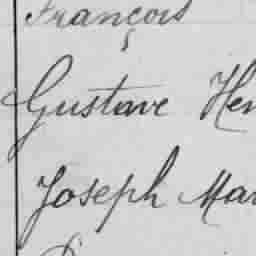 François
Gustave Hen
Joseph Mar